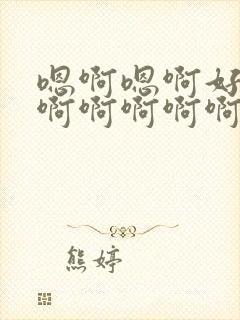 嗯啊嗯啊好
啊啊啊啊啊
熊婷